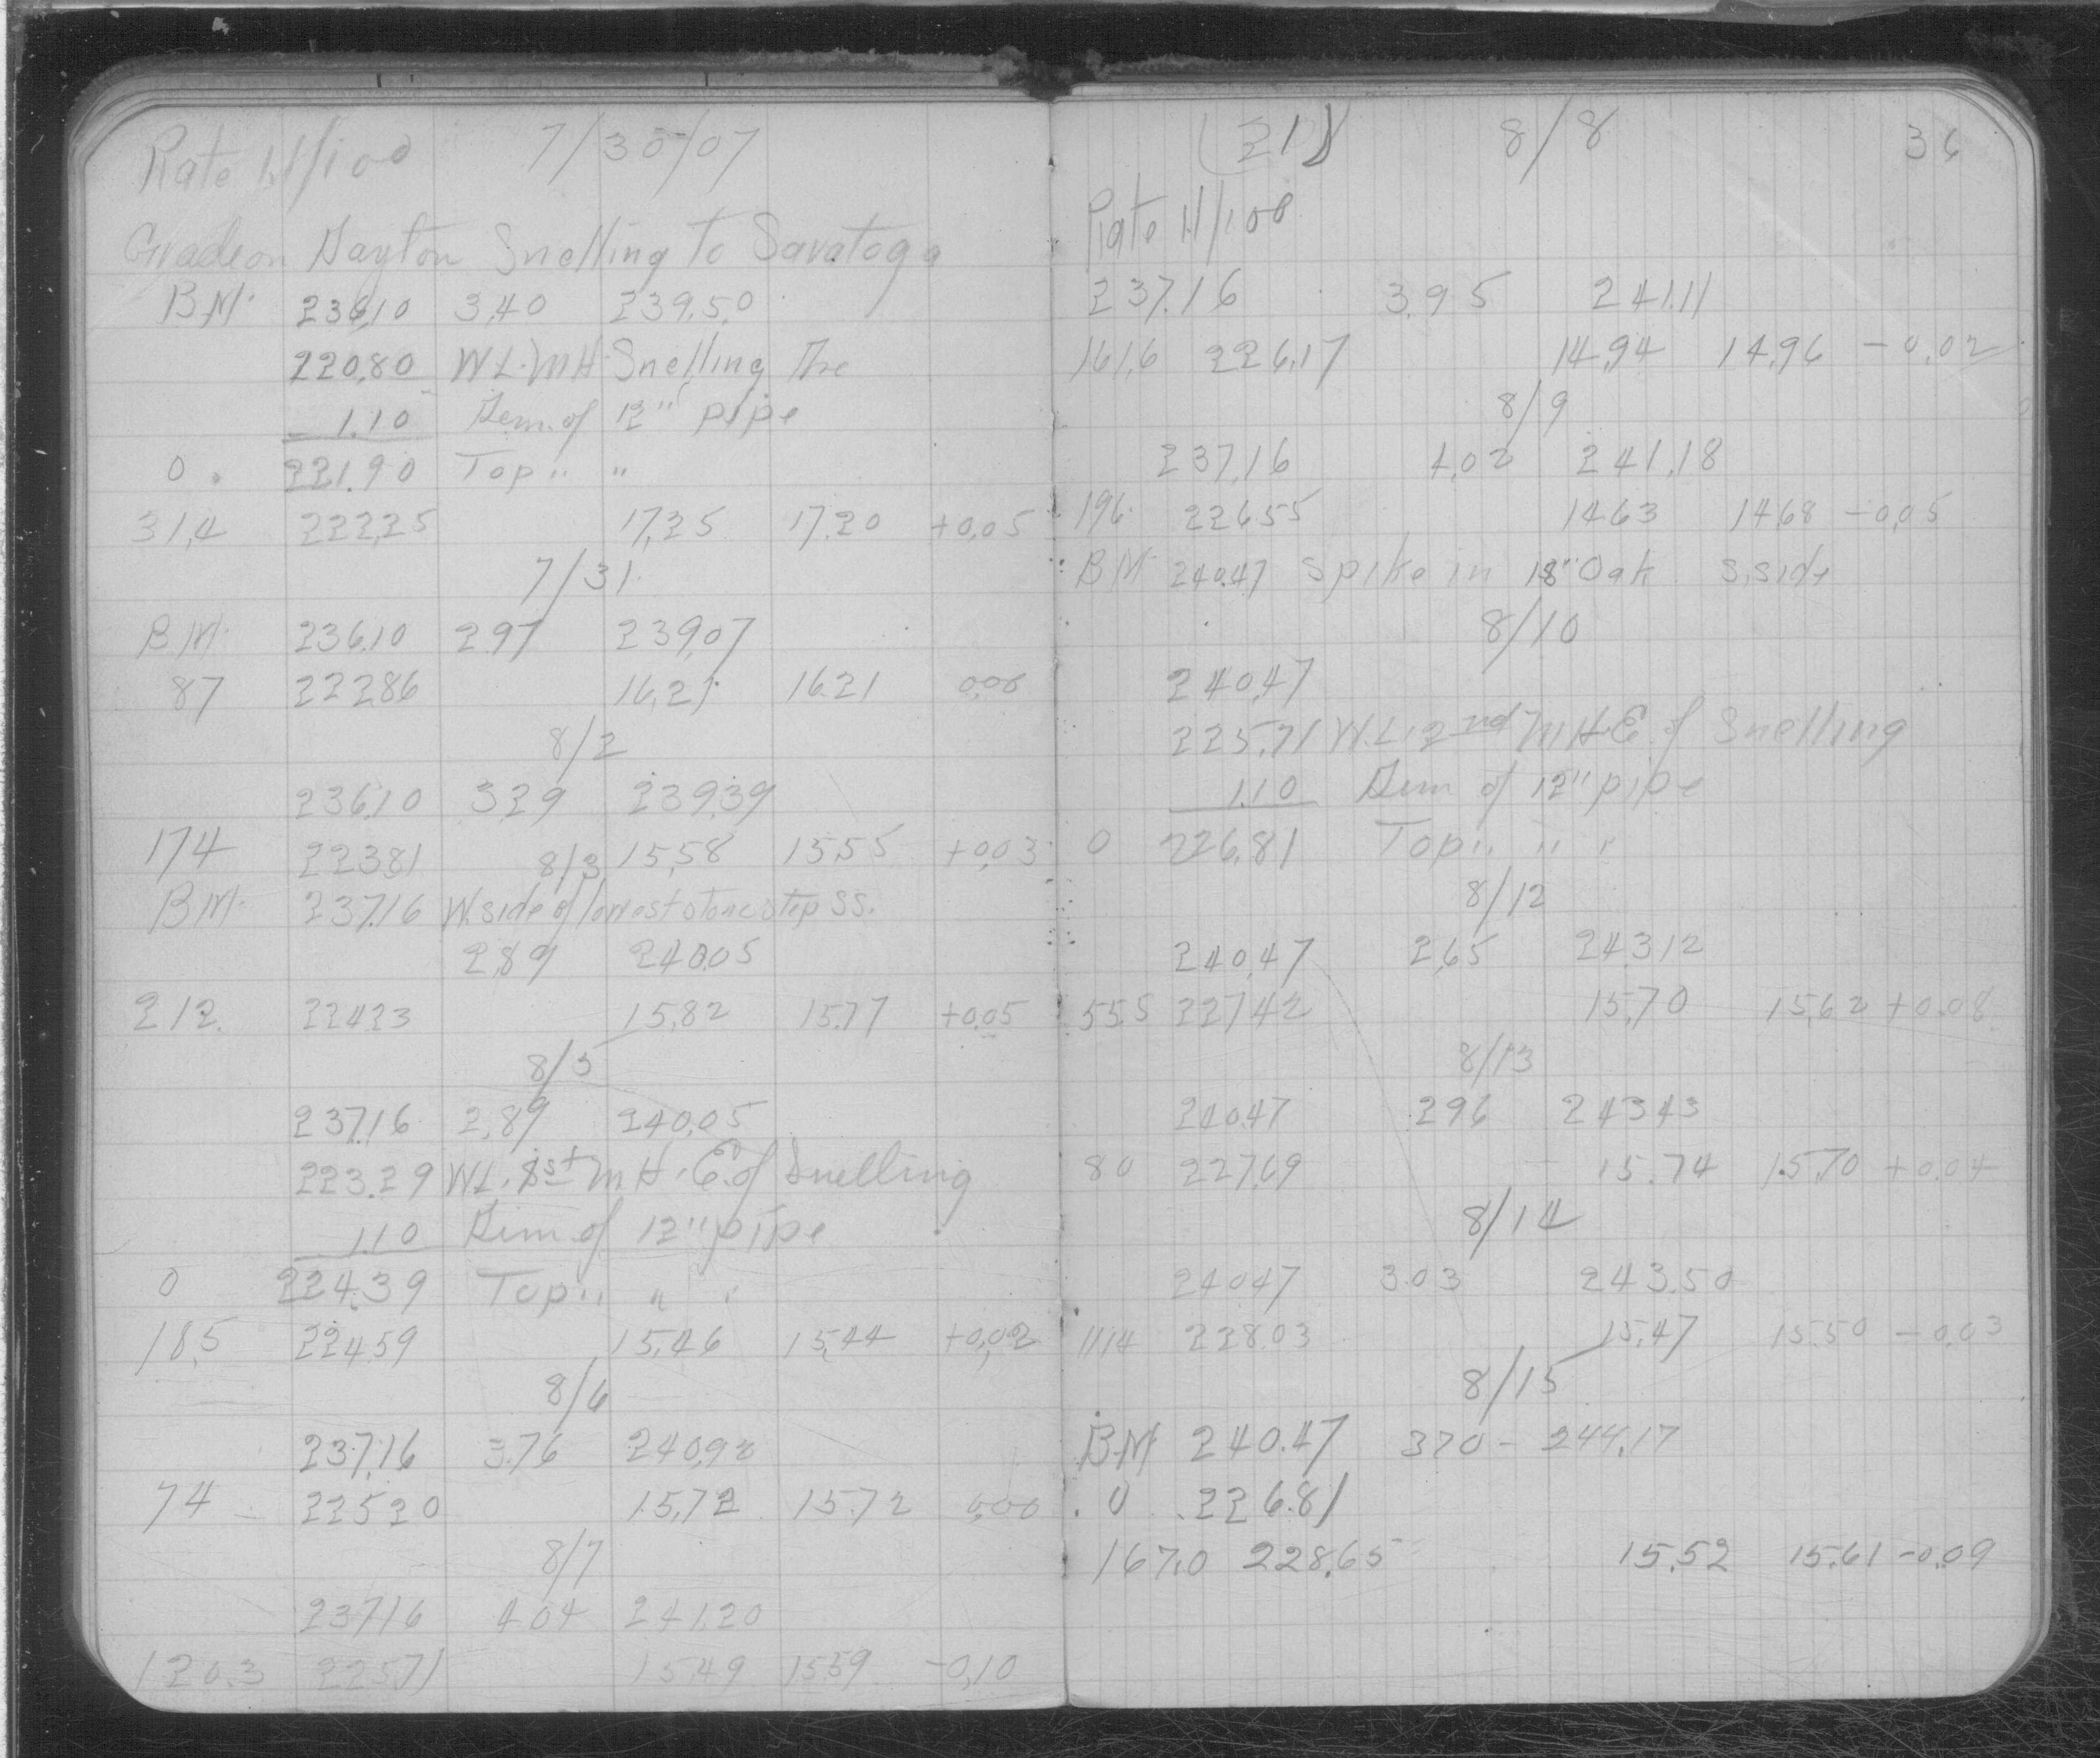 Rate 1.1/100 7/30/07
Grade on Dayton Snelling to Saratoga
B.M. 236.10 3.40 239.50
220.80 W.L. M.H. Snelling Ave
1.10 Dem. of 12" pipe
0. 221.90 Top " "
31.4 222.25 17.25 17.20 +0.05
7/31
B.M. 236.10 2.97 239.07
87 222.86 16.21 16.21 0.00
8/2
236.10 3.29 239.39
174 223.81 15.58 15.55 +0.03
8/3
B.M. 237.16 W. side of lowest stone step S.S.
2.89 240.05
212. 224.23 15.82 15.77 +0.05
8/5
237.16 2.89 240.05
223.29 W.L. 1st M.H. E. of Snelling
1.10 Dim of 12" pipe
0 224.39 Top " " "
18.5 224.59 15.46 15.44 +0.02
8/6
237.16 3.76 240.92
74 225.20 15.72 15.72 0.00
8/7
237.16 4.04 241.20
120.3 225.71 15.49 15.59 -0.10
(21) 8/8 36
Rate 1.1/100
237.16 3.95 241.11
161.6 226.17 14.94 14.96 -0.02
8/9
237.16 4.02 241.18
196. 226.55 14.63 14.68 -0.05
B.M. 240.47 Spike in 18" Oak S. side
8/10
240.47
225.71 W.L. 2nd M.H. E. of Snelling
1.10 Dim of 12" pipe
0 226.81 Top " " "
8/12
240.47 2.65 243.12
55.5 227.42 15.70 15.62 +0.08
8/13
240.47 2.96 243.43
80 227.69 15.74 15.70 +0.04
8/14
240.47 3.03 243.50
111.4 228.03 15.47 15.50 -0.03
8/15
B.M 240.47 3.70 - 244.17
0 226.81
167.0 228.65 15.52 15.61 -0.09